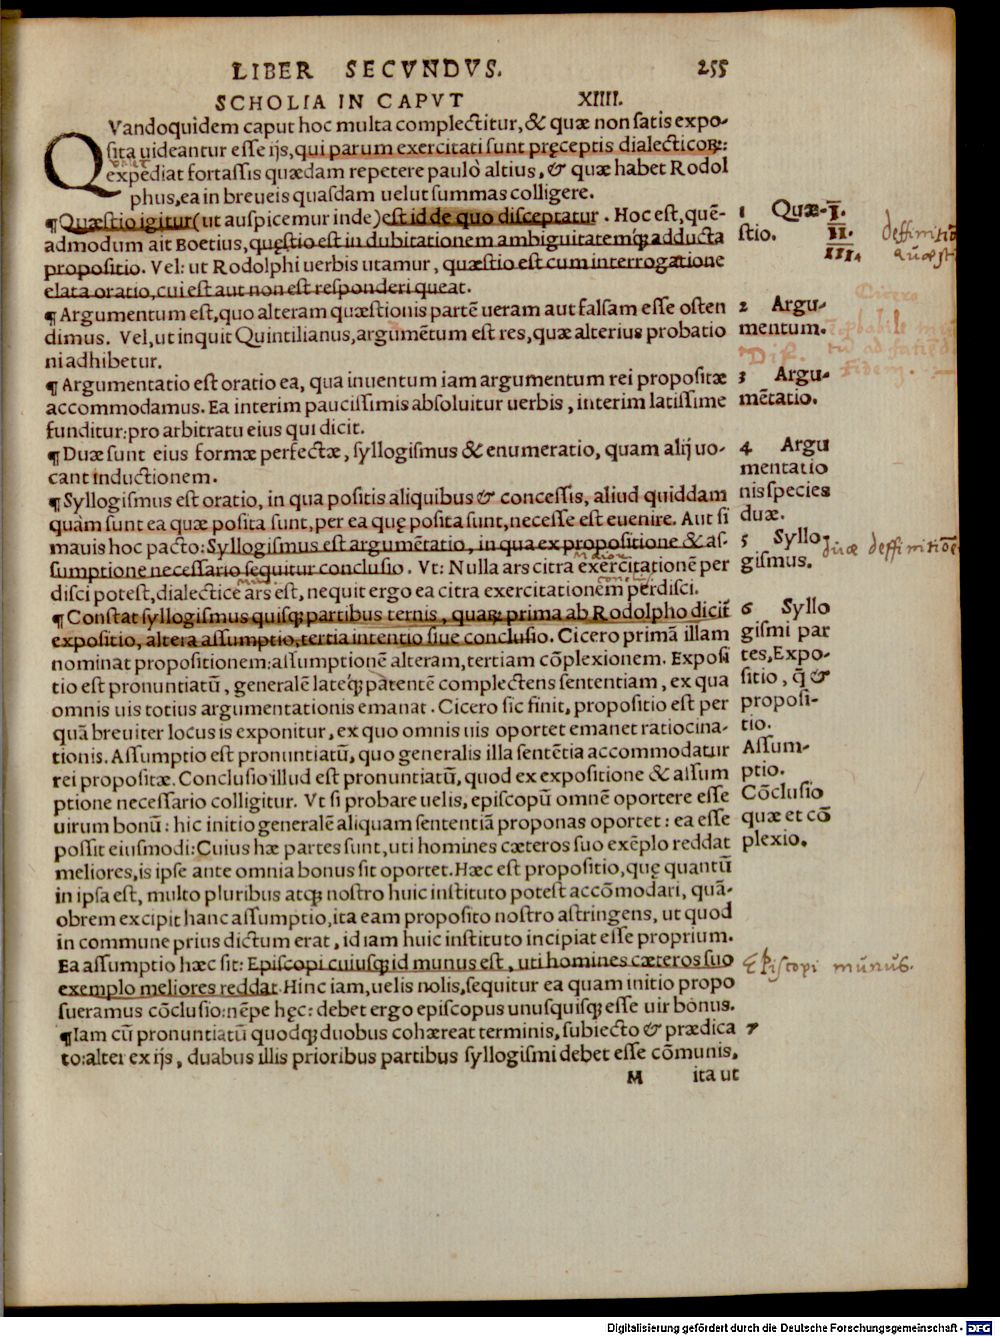 LIBER SECVNDVS. 255
SCHOLIA IN CAPVT XIIII.
QVandoquidem caput hoc multa complectitur, & quæ non satis expo-
sita uideantur esse ijs, qui parum exercitati sunt pręceptis dialecticoꝝ:
expediat fortassis quædam repetere paulò altius, & quæ habet Rodol
phus, ea in breueis quasdam uelut summas colligere.
¶Quæstio igitur (ut auspicemur inde) est id de quo disceptatur. Hoc est, quē-
admodum ait Boetius, quęstio est in dubitationem ambiguitatemꝗ; adducta
propositio. Vel: ut Rodolphi uerbis utamur, quæstio est cum interrogatione
elata oratio, cui est aut non est responderi queat.
¶ Argumentum est, quo alteram quæstionis partē ueram aut falsam esse osten
dimus. Vel, ut inquit Quintilianus, argumētum est res, quæ alterius probatio
ni adhibetur.
¶ Argumentatio est oratio ea, qua inuentum iam argumentum rei propositæ
accommodamus. Ea interim paucissimis absoluitur uerbis, interim latissime
funditur: pro arbitratu eius qui dicit.
¶ Duæ sunt eius formæ perfectæ, syllogismus & enumeratio, quam alij uo-
cant inductionem.
¶ Syllogismus est oratio, in qua positis aliquibus & concessis, aliud quiddam
quàm sunt ea quæ posita sunt, per ea quę posita sunt, necesse est euenire. Aut si
mauis hoc pacto: Syllogismus est argumētatio, in qua ex propositione & as-
sumptione necessario sequitur conclusio. Vt: Nulla ars citra exercitationē per
disci potest, dialectice ars est, nequit ergo ea citra exercitationem perdisci.
¶ Constat syllogismus quisꝗ; partibus ternis, quaꝝ prima ab Rodolpho dicit᷑
expositio, altera assumptio, tertia intentio siue conclusio. Cicero primā illam
nominat propositionem: assumptionē alteram, tertiam cōplexionem. Exposi
tio est pronuntiatū, generalē lateꝗ; patentē complectens sententiam, ex qua
omnis uis totius argumentationis emanat. Cicero sic finit, propositio est per
quā breuiter locus is exponitur, ex quo omnis uis oportet emanet ratiocina-
tionis. Assumptio est pronuntiatū, quo generalis illa sentētia accommodatur
rei propositæ. Conclusio illud est pronuntiatū, quod ex expositione & assum
ptione necessario colligitur. Vt si probare uelis, episcopū omnē oportere esse
uirum bonū: hic initio generalē aliquam sententiā proponas oportet: ea esse
possit eiusmodi: Cuius hæ partes sunt, uti homines cæteros suo exēplo reddat
meliores, is ipse ante omnia bonus sit oportet. Hæc est propositio, quę quantū
in ipsa est, multo pluribus atꝗ; nostro huic instituto potest accōmodari, quā-
obrem excipit hanc assumptio, ita eam proposito nostro astringens, ut quod
in commune prius dictum erat, id iam huic instituto incipiat esse proprium.
Ea assumptio hæc sit: Episcopi cuiusꝗ; id munus est, uti homines cæteros suo
exemplo meliores reddat. Hinc iam, uelis nolis, sequitur ea quam initio propo
sueramus cōclusio: nēpe hęc: debet ergo episcopus unusquisꝗ; esse uir bonus.
¶Iam cū pronuntiatū quodꝗ; duobus cohæreat terminis, subiecto & prædica
to: alter ex ijs, duabus illis prioribus partibus syllogismi debet esse cōmunis,
M ita ut
1 Quæ-
stio.
I.
II.
III.
deffinitiōes
2 Argu-
mentum.
Cicero
Dis.
3 Argu-
mētatio.
4 Argu
mentatio
nis species
duæ.
5 Syllo-
gismus.
duæ deffinitiōes
Maior
6 Syllo
gismi par
tes, Expo-
sitio, q̄ &
proposi-
tio.
Assum-
ptio.
Cōclusio
quæ et cō
plexio.
Episcopi munus.
7